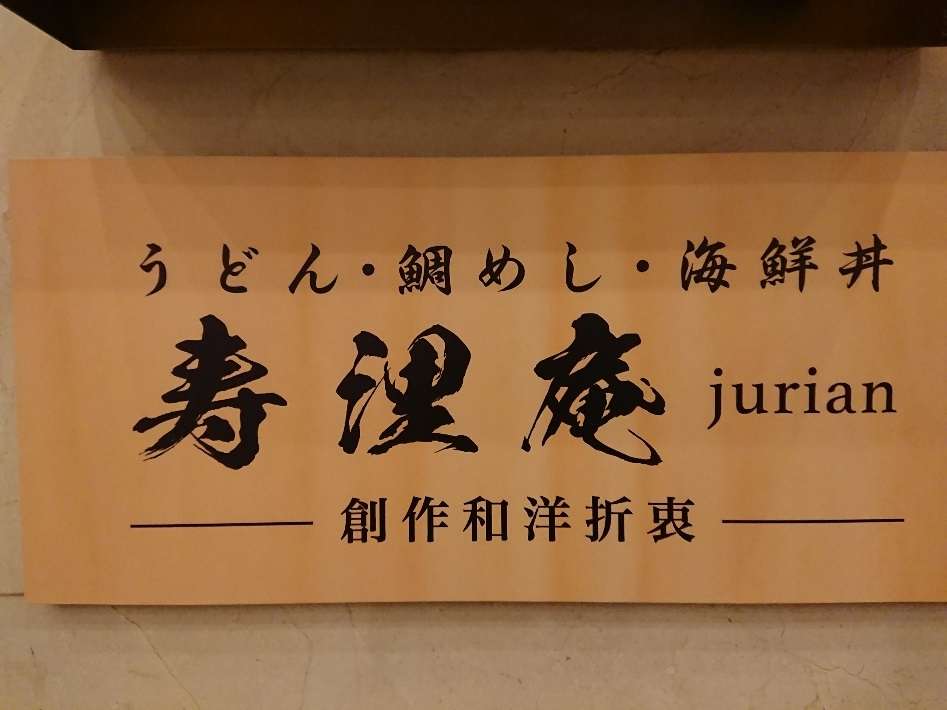 うどん・鯛めし・海鮮丼
寿浬庵 jurian
創作和洋折衷